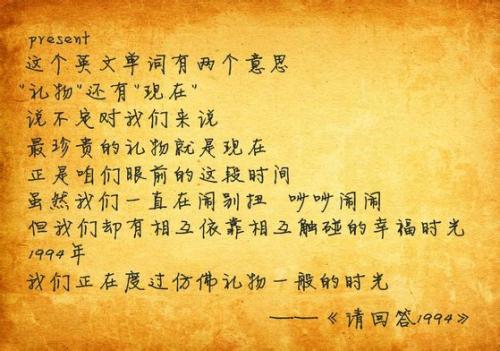 present
这个英文单词有两个意思
"礼物"还有"现在"
说不定对我们来说
最珍贵的礼物就是现在
正是咱们眼前的这段时间
虽然我们一直在闹别扭 吵吵闹闹
但我们却有相互依靠相互触碰的幸福时光
1994年
我们正在度过仿佛礼物一般的时光
——《请回答1994》